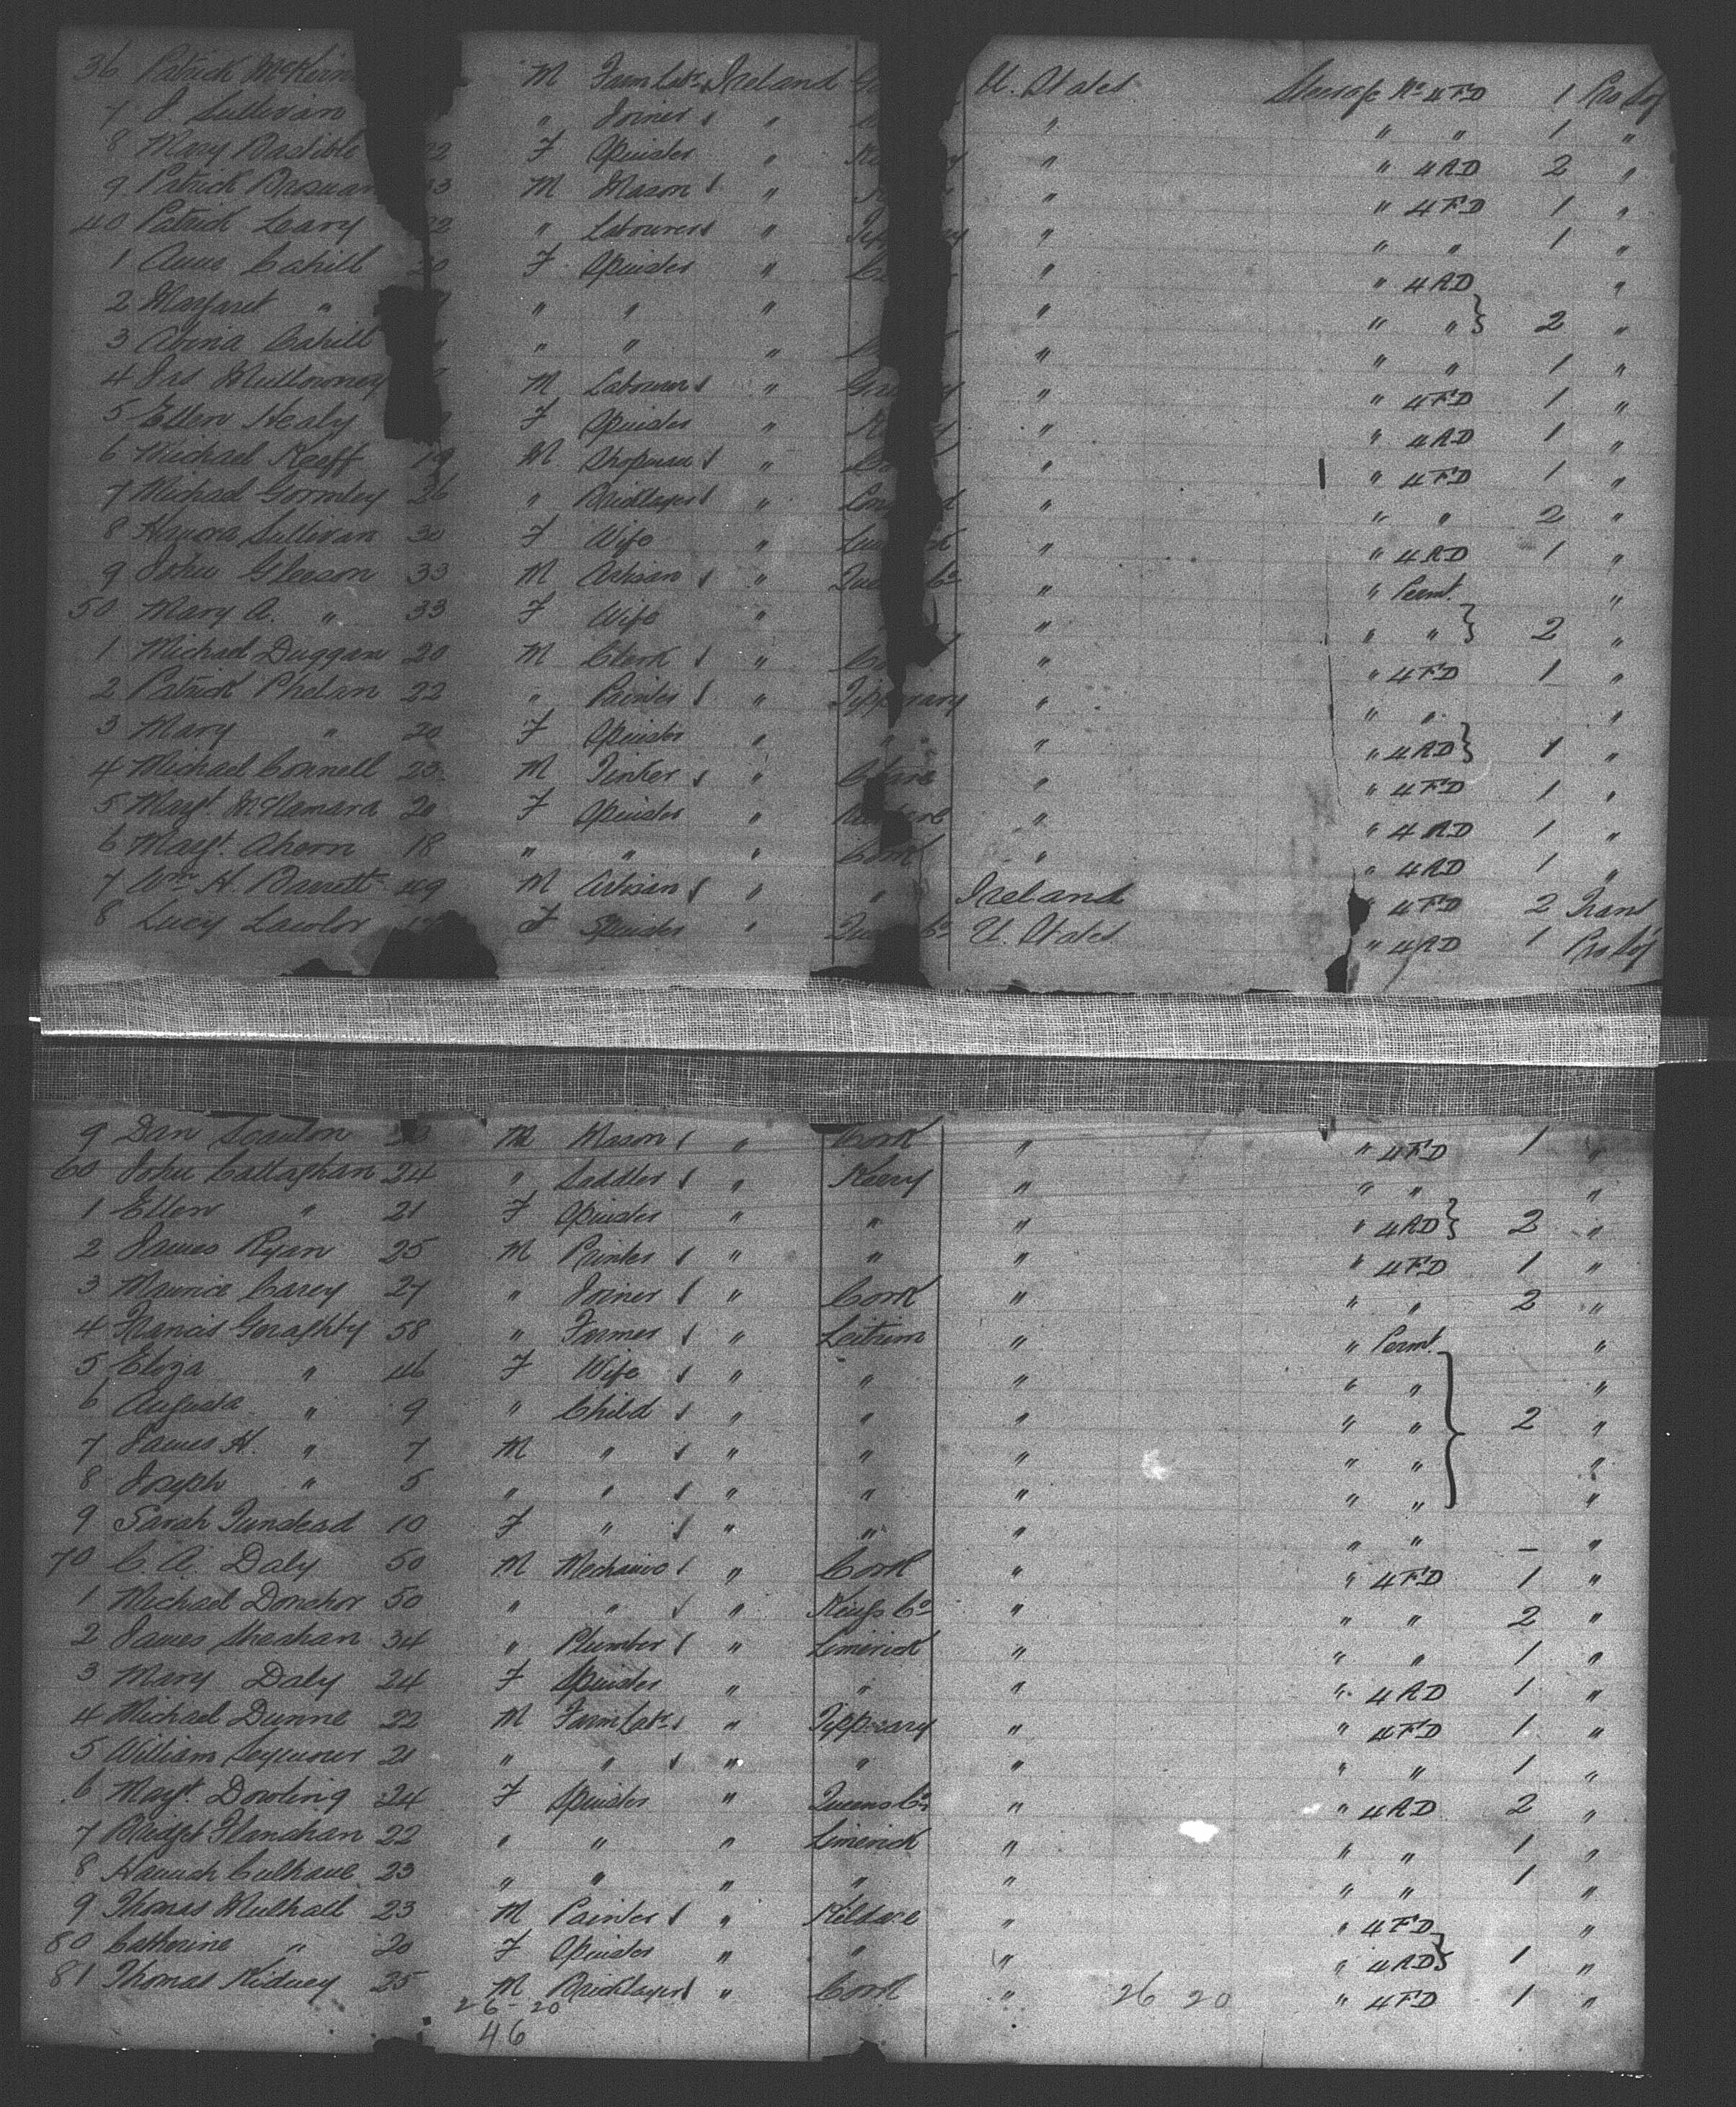 36 Patrick M Farm Labr Ireland U. States Steerage No 4 FD 1 Pro Soj
7 J. Sullivan " Joiner " " " " 1 "
8 Mary F Spinster " " " 4 AD 2 "
9 Patrick M Mason " " " 4 FD 1 "
40 Patrick Leary " Labourer " " " " 1 "
1 Anne Cahill F Spinster " " " 4 AD "
2 Margaret " " " " " " " } 2 "
3 Abina Cahill " " " " " " 1 "
4 Jas Mullowney M Labourer " " " 4 FD 1 "
5 Ellen Healy F Spinster " " " 4 AD 1 "
6 Michael Keeff 19 M Shopman " " " 4 FD 1 "
7 Michael Gormley 26 " Bricklayer " " " " 2 "
8 Hanora Sullivan 30 F Wife " " " 4 AD 1 "
9 John Gleeson 33 M Artisan " " " Permt. "
50 Mary A. " 33 F Wife " " " " } 2 "
1 Michael Duggan 20 M Clerk " " " 4 FD 1 "
2 Patrick Phelan 22 " Painter " Tipperary " " " "
3 Mary " 20 F Spinster " " " " 4 AD } 1 "
4 Michael Connell 23 M Tinker " Clare " " 4 FD 1 "
5 Magt. McNamara 20 F Spinster " " " 4 AD 1 "
6 Magt. Ahern 18 " " " Cork " " 4 AD 1 "
7 Wm H. Barrett 49 M Artisan " " Ireland " 4 FD 2 Trans
8 Lucy Lawlor F Spinster " U. States " 4 AD 1 Pro Soj
9 Dan Scanlon M Mason " Cork " " 4 FD 1 "
60 John Callaghan 24 " Saddler " Kerry " " " "
1 Ellen " 21 F Spinster " " " " 4 AD } 2 "
2 James Ryan 25 M Printer " " " " 4 FD 1 "
3 Maurice Carey 27 " Joiner " Cork " " " 2 "
4 Francis Geraghty 58 " Farmer " Leitrim " " Permt. "
5 Eliza " 46 F Wife " " " " " "
6 Augusta " 9 " Child " " " " " } 2 "
7 James H. " 7 M " " " " " " "
8 Joseph " 5 " " " " " " " "
9 Sarah Tunstead 10 F " " " " " " — "
70 C. A. Daly 50 M Mechanic " Cork " " 4 FD 1 "
1 Michael Donohor 50 " " " Kings Co " " " 2 "
2 James Sheahan 34 " Plumber " Limerick " " " 1 "
3 Mary Daly 24 F Spinster " " " " 4 AD 1 "
4 Michael Dunne 22 M Farm Labr " Tipperary " " 4 FD 1 "
5 William Seymour 21 " " " " " " " 1 "
6 Magt. Dowling 24 F Spinster " Queens Co " " 4 AD 2 "
7 Bridget Flanahan 22 " " " Limerick " " " 1 "
8 Hannah Culhane 23 " " " " " " " 1 "
9 Thomas Mulhall 23 M Painter " Kildare " " 4 FD "
80 Catherine " 20 F Spinster " " " " 4 AD } 1 "
81 Thomas Kidney 25 M Bricklayer " Cork " 26 20 " 4 FD 1 "
26-20
46